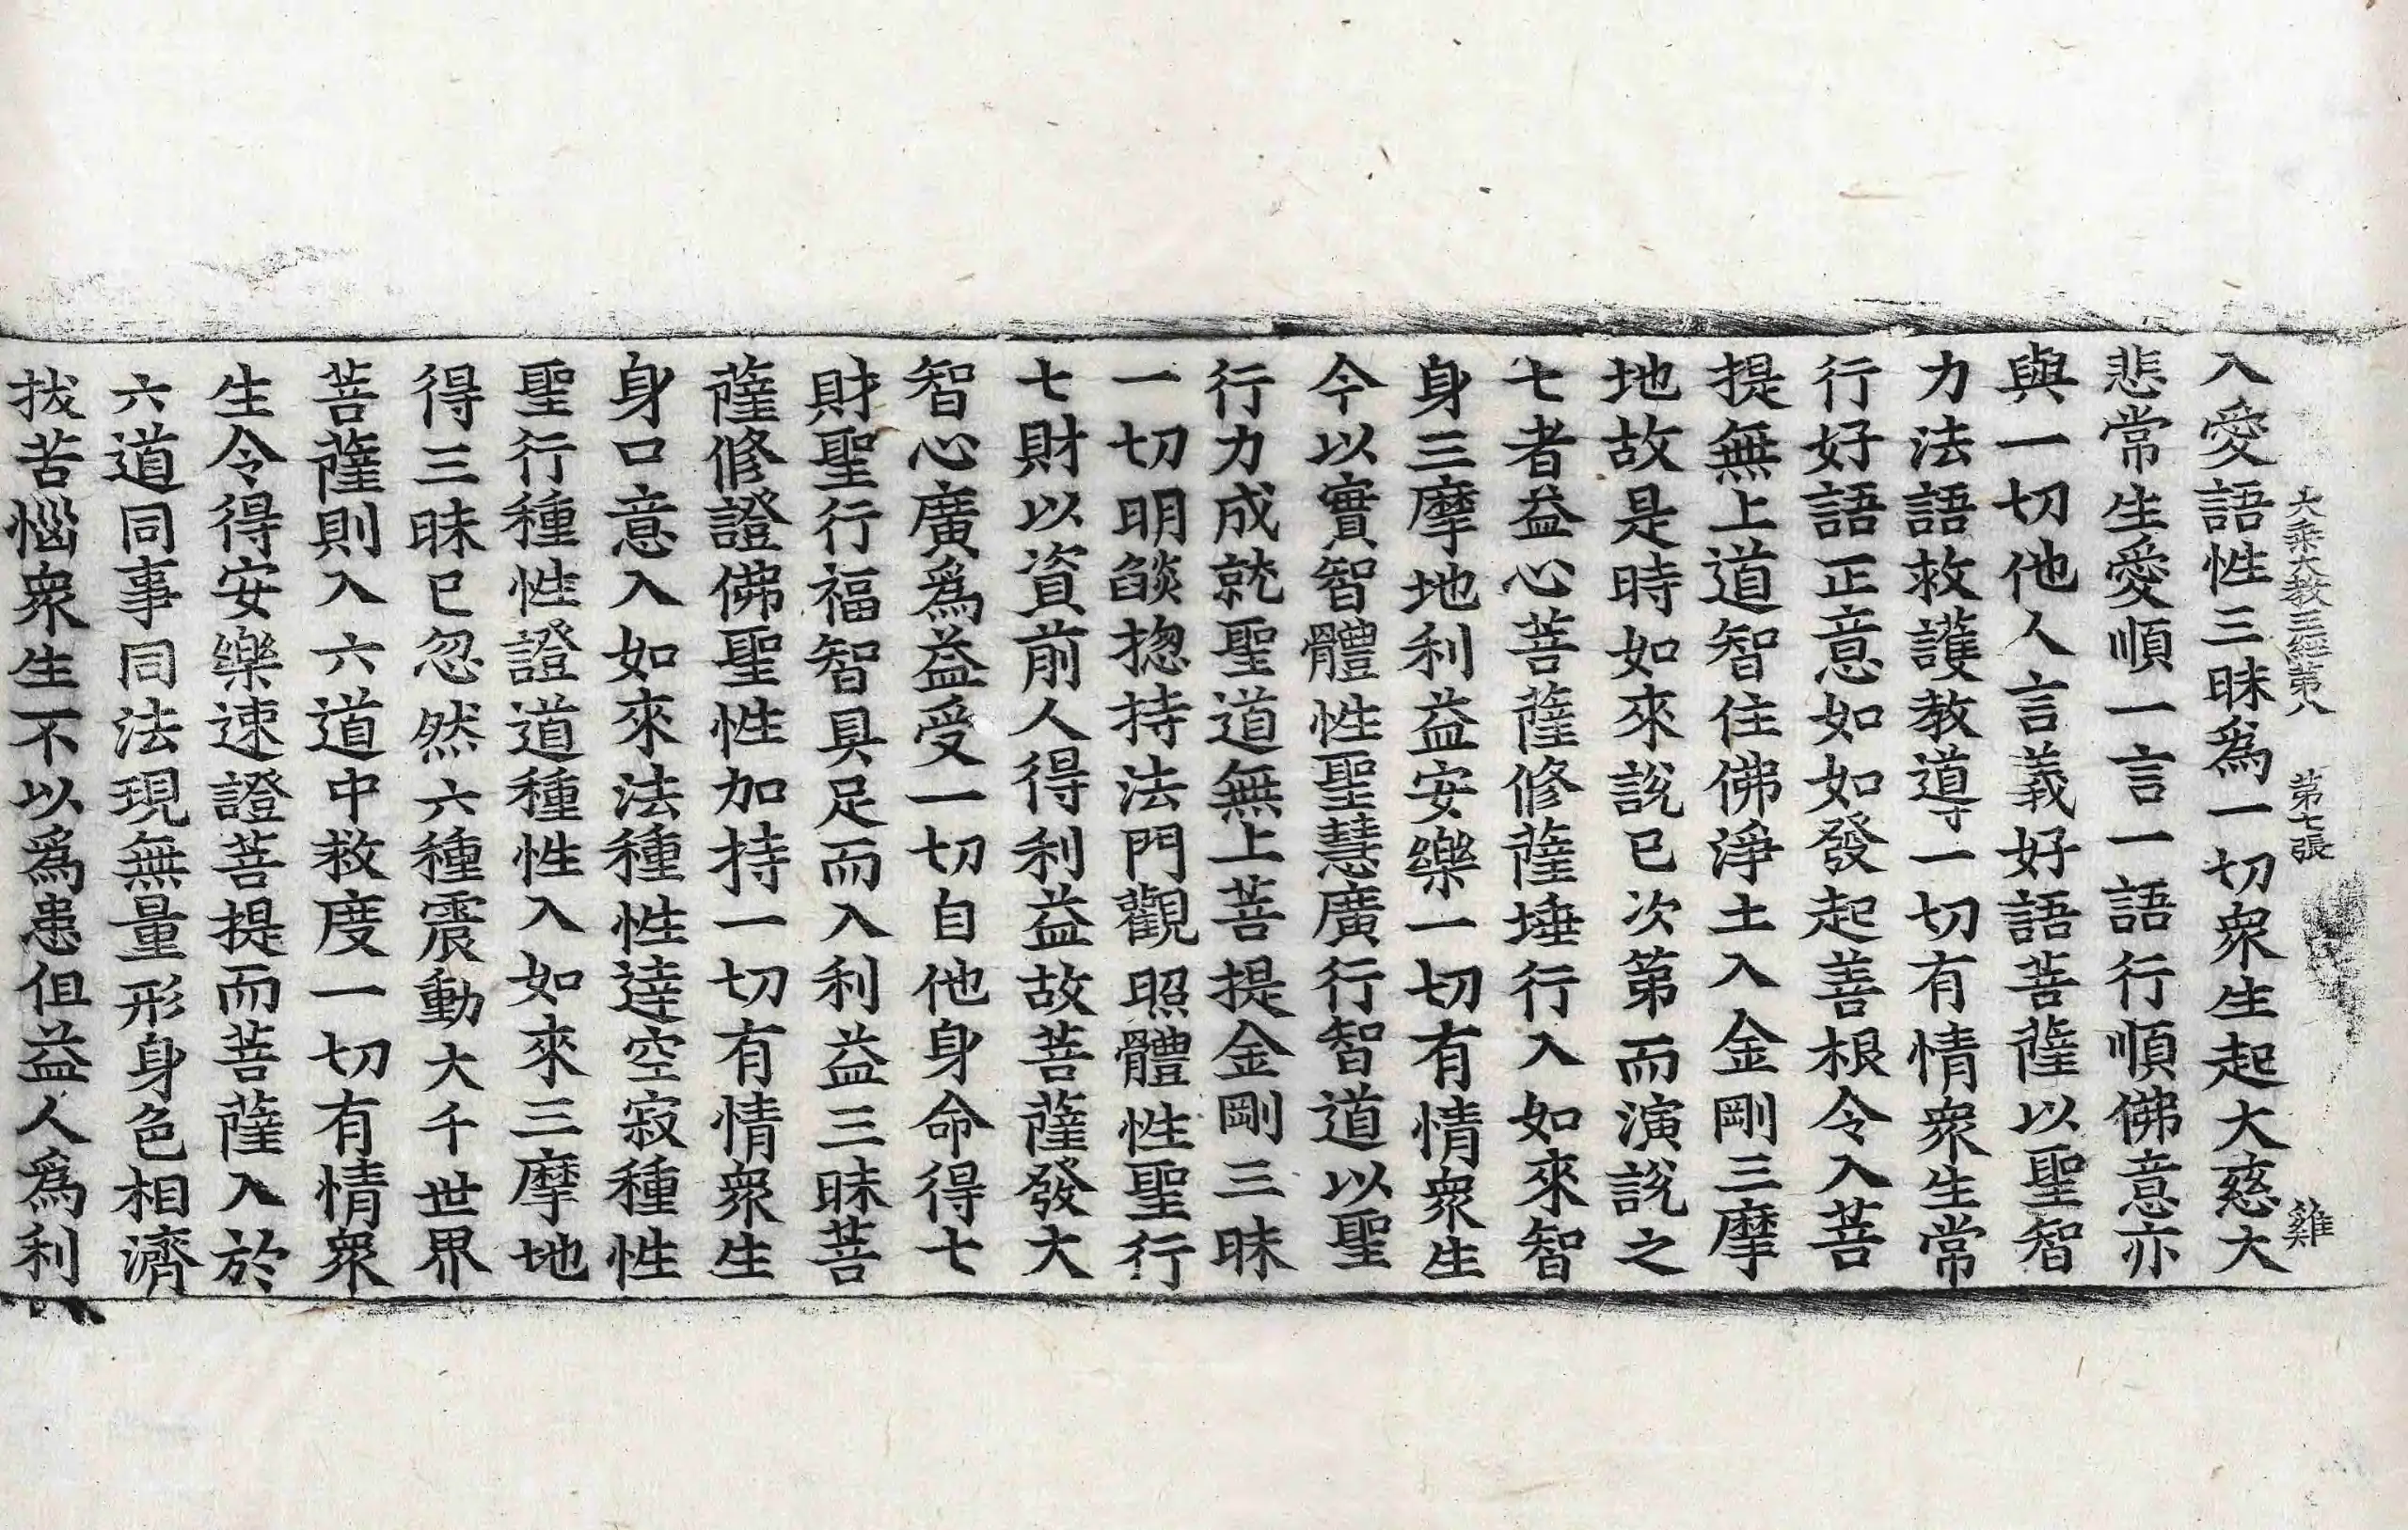 大乘大教王經第八　第七張　雞
入愛語性三昧為一切衆生起大慈大
悲常生愛順一言一語行順佛意亦
與一切他人言義好語菩薩以聖智
力法語救護教導一切有情衆生常
行好語正意如如發起善根令入菩
提無上道智住佛淨土入金剛三摩
地故是時如來說已次第而演說之
七者益心菩薩修薩埵行入如來智
身三摩地利益安樂一切有情衆生
今以實智體性聖慧廣行智道以聖
行力成就聖道無上菩提金剛三昧
一切明㷔揔持法門觀照體性聖行
七財以資前人得利益故菩薩發大
智心廣爲益受一切自他身命得七
財聖行福智具足而入利益三昧菩
薩修證佛聖性加持一切有情衆生
身口意入如來法種性達空寂種性
聖行種性證道種性入如來三摩地
得三昧已忽然六種震動大千世界
菩薩則入六道中救度一切有情衆
生令得安樂速證菩提而菩薩入於
六道同事同法現無量形身色相濟
拔苦惱衆生不以爲患但益人爲利